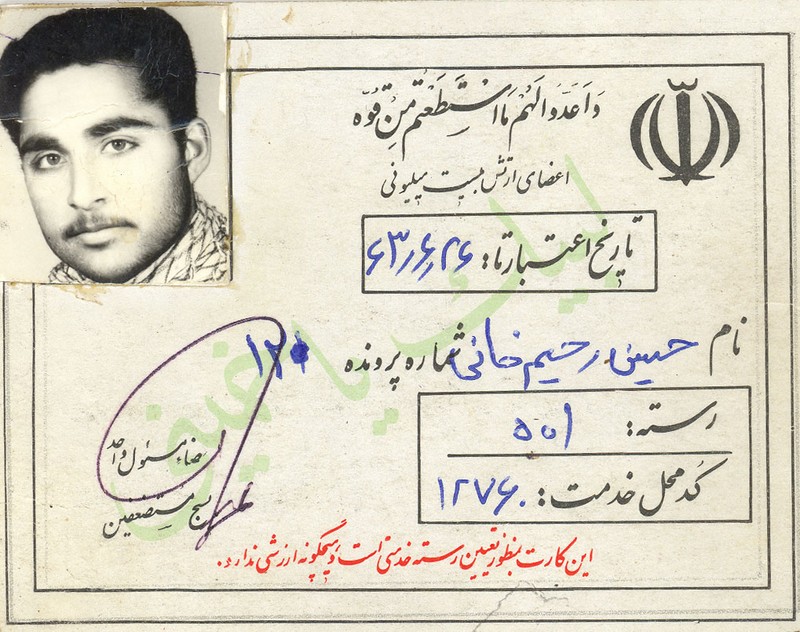 وَاَعِدُّوا لَهُم مَا اسْتَطَعْتُم مِنْ قُوَّه
اعضای ارتش بیست میلیونی
تاریخ اعتبار تا: ۶۳/۶/۲۶
نام حسین رحیم خانی شماره پرونده ۱۲۰
رسته: ۵۰۱
کُد محل خدمت: ۱۲۷۶۰
امضاء مسئول واحد
بسیج مستضعفین
این کارت بمنظور تعیین رسته خدمتی است و هیچگونه ارزشی ندارد.
لبیک یا خمینی